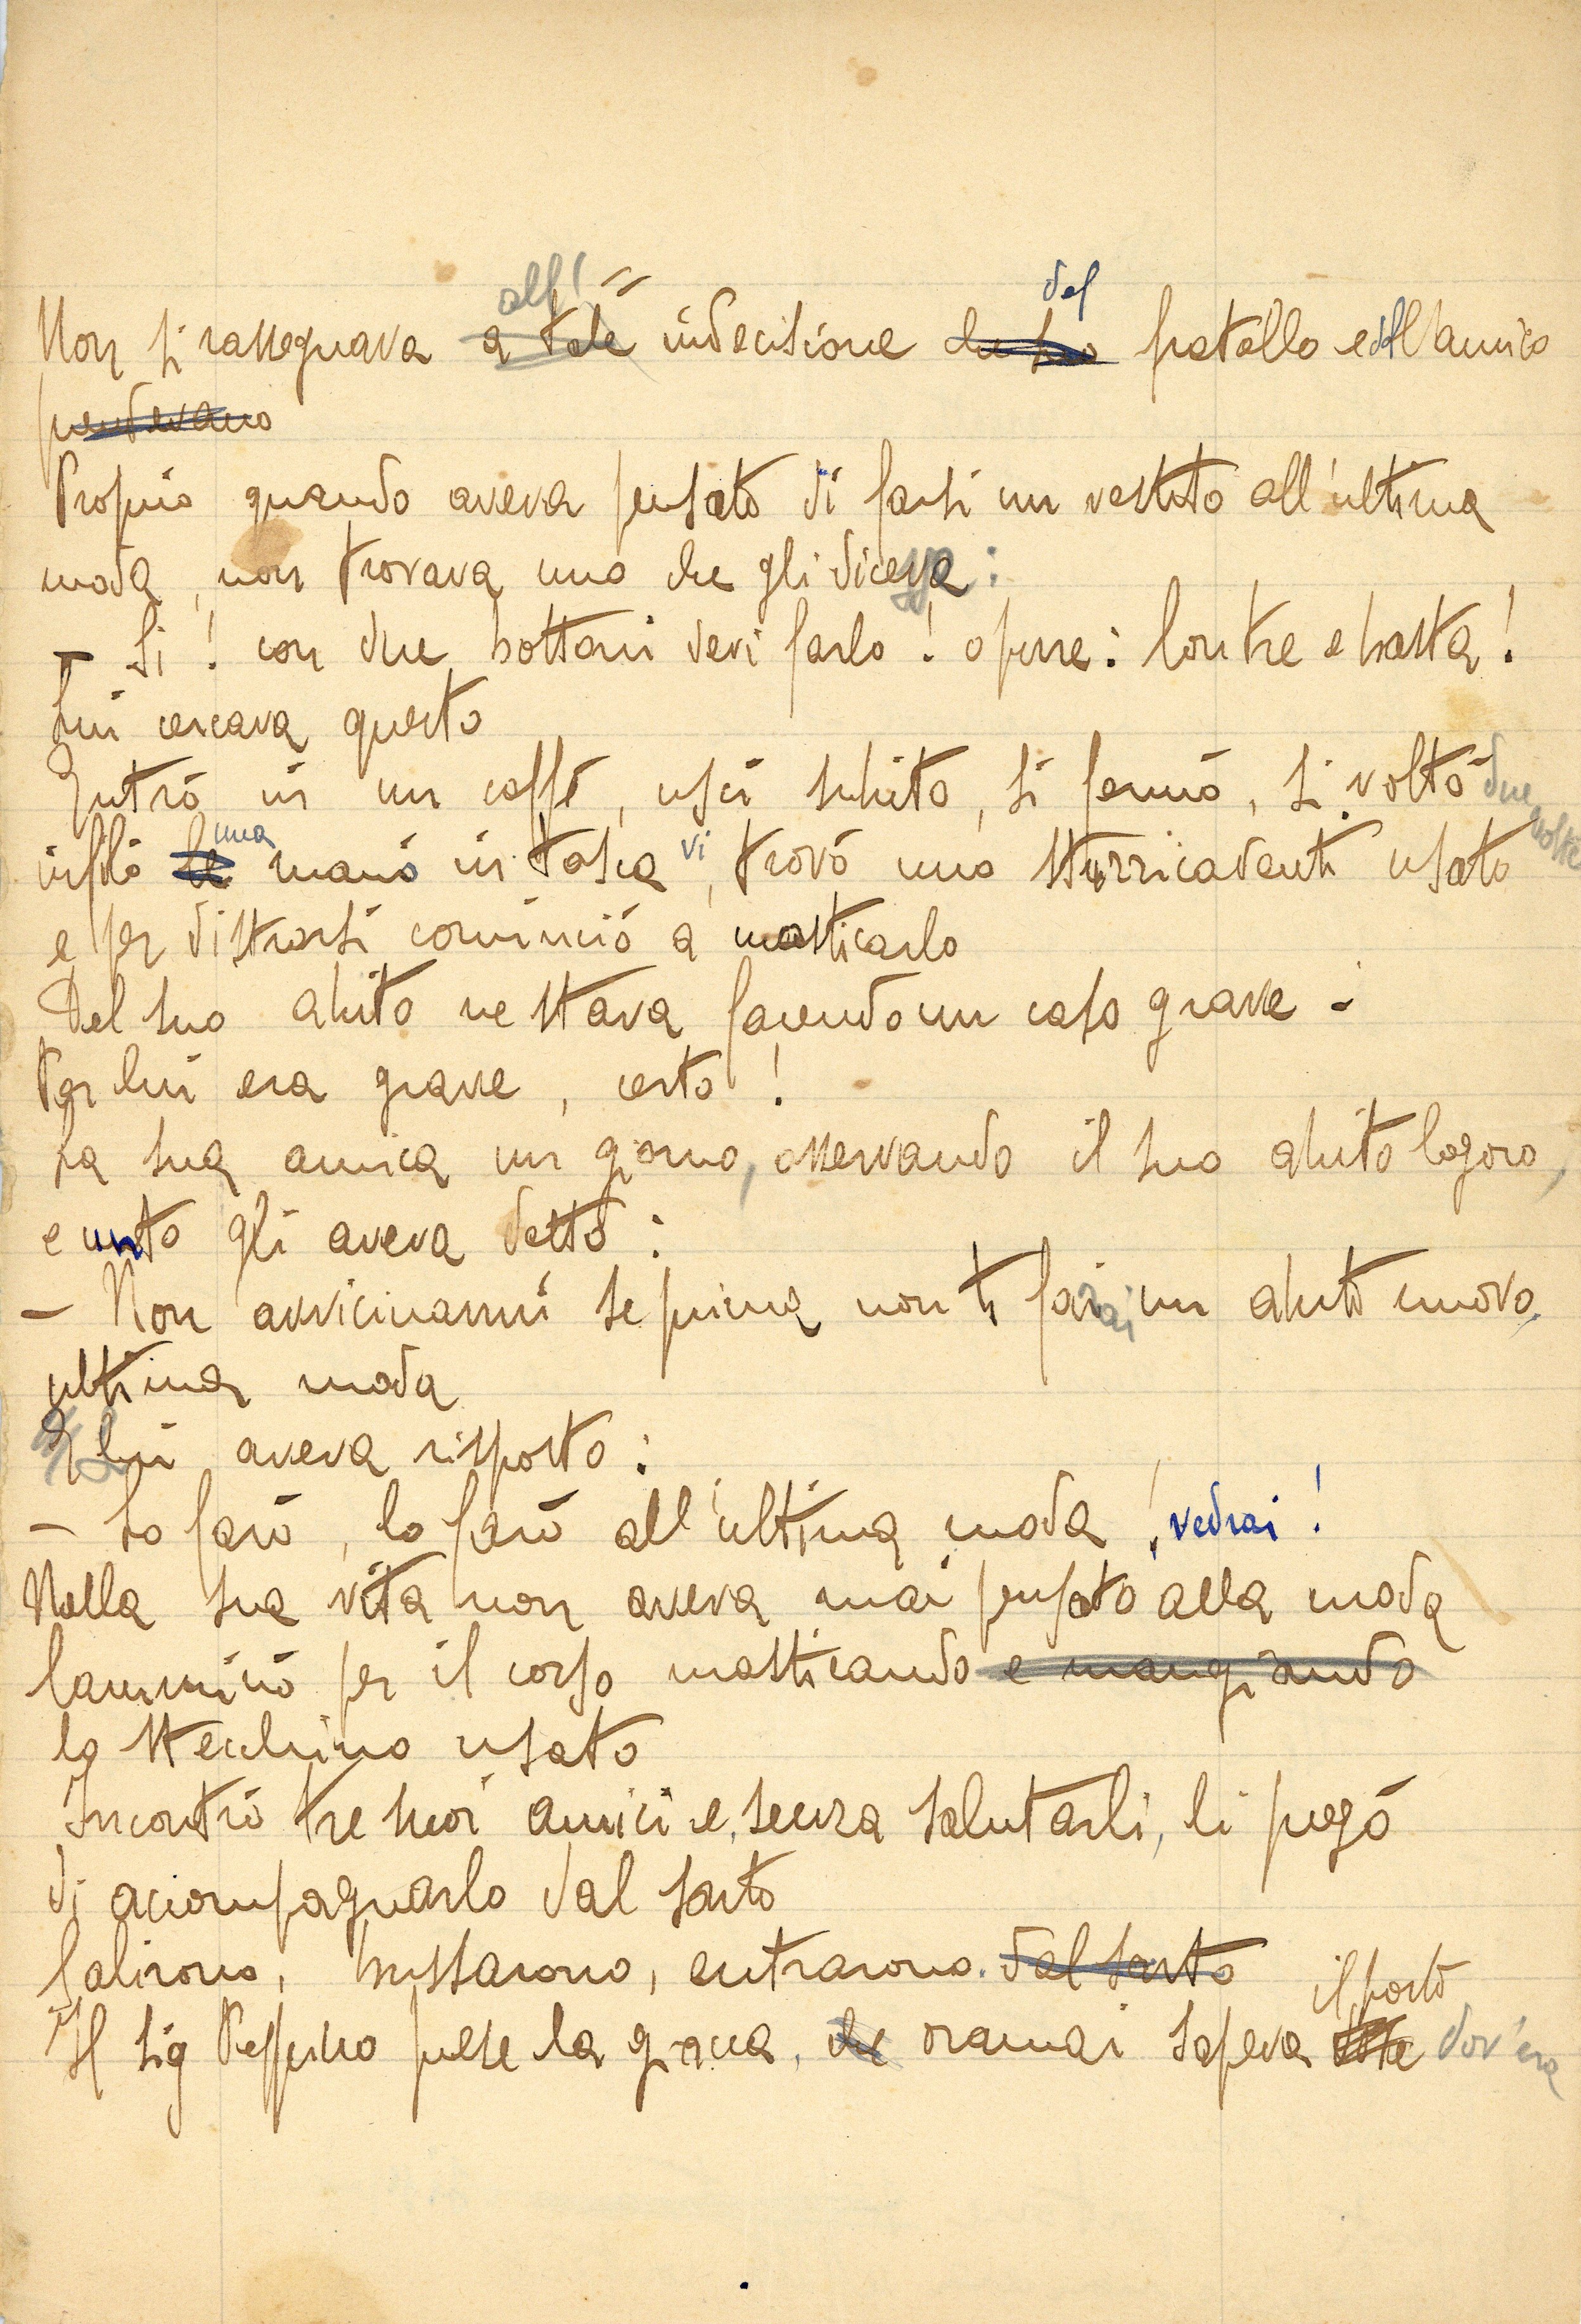 Non si rassegnava all' a tale indecisione che suo del fratello e dell'amico
prendevano
Proprio quando aveva pensato di farsi un vestito all'ultima
moda, non trovava uno che gli diceva:
- Si! con due bottoni devi farlo! opure: Con tre e basta!
Lui cercava questo
Entrò in un caffè, uscì subito, si fermò, si voltò due volte
infilò la una mano in tasca vi, trovò uno stuzzicadenti usato
e per distrarsi cominciò a masticarlo
Del suo abito ne stava facendo un caso grave -
Per lui era grave, certo!
La sua amica un giorno, osservando il suo abito logoro,
e unto gli aveva detto:
- Non avvicinarmi se prima non ti farai un abito nuovo,
ultima moda
E lui aveva risposto:
- Lo farò, lo farò all'ultima moda, vedrai!
Nella sua vita non aveva mai pensato alla moda
Camminò per il corso masticando e mangiando
lo stecchino usato
Incontrò tre suoi amici e, senza salutarli, li pregò
di accompagnarlo dal sarto
Salirono, bussarono, entrarono. dal sarto
Il sig Peppino prese la giacca, che oramai sapeva il posto dov'era